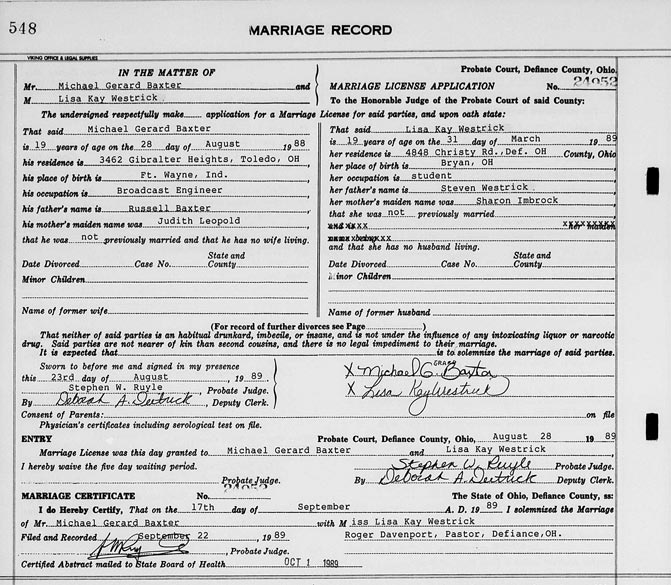 548
MARRIAGE RECORD
VIKING OFFICE & LEGAL SUPPLIES
IN THE MATTER OF
Mr. Michael Gerard Baxter and
M Lisa Kay Westrick
Probate Court, Defiance County, Ohio.
No. 24052
MARRIAGE LICENSE APPLICATION
To the Honorable Judge of the Probate Court of said County:
The undersigned respectfully make application for a Marriage License for said parties, and upon oath state:
That said Michael Gerard Baxter
is 19 years of age on the 28 day of August 1988
his residence is 3462 Gibralter Heights, Toledo, OH
his place of birth is Ft. Wayne, Ind.
his occupation is Broadcast Engineer
his father's name is Russell Baxter
his mother's maiden name was Judith Leopold
that he was not previously married and that he has no wife living.
State and
Date Divorced Case No. County
Minor Children
Name of former wife
That said Lisa Kay Westrick
is 19 years of age on the 31 day of March 1989
her residence is 4848 Christy Rd.,Def. OH County, Ohio
her place of birth is Bryan, OH
her occupation is student
her father's name is Steven Westrick
her mother's maiden name was Sharon Imbrock
that she was not previously married
her maiden
and that she has no husband living.
State and
Date Divorced Case No. County
Minor Children
Name of former husband
(For record of further divorces see Page )
That neither of said parties is an habitual drunkard, imbecile, or insane, and is not under the influence of any intoxicating liquor or narcotic
drug. Said parties are not nearer of kin than second cousins, and there is no legal impediment to their marriage.
It is expected that is to solemnize the marriage of said parties.
Sworn to before me and signed in my presence
this 23rd day of August, 1989.
Stephen W. Ruyle, Probate Judge.
By Deborah A. Deitrick, Deputy Clerk.
X Michael G. Baxter
X Lisa Kay Westrick
Consent of Parents: on file
Physician's certificates including serological test on file.
ENTRY
Probate Court, Defiance County, Ohio, August 28 1989
Marriage License was this day granted to Michael Gerard Baxter and Lisa Kay Westrick
I hereby waive the five day waiting period.
Stephen W. Ruyle Probate Judge.
By Deborah A. Deitrick Deputy Clerk.
Probate Judge.
MARRIAGE CERTIFICATE No. 24052 The State of Ohio, Defiance County, ss:
I do Hereby Certify, That on the 17th day of September A. D. 1989 I solemnized the Marriage
of Mr. Michael Gerard Baxter with M iss Lisa Kay Westrick
Filed and Recorded September 22, 1989
Roger Davenport, Pastor, Defiance,OH.
, Probate Judge.
Certified Abstract mailed to State Board of Health OCT 1 1989